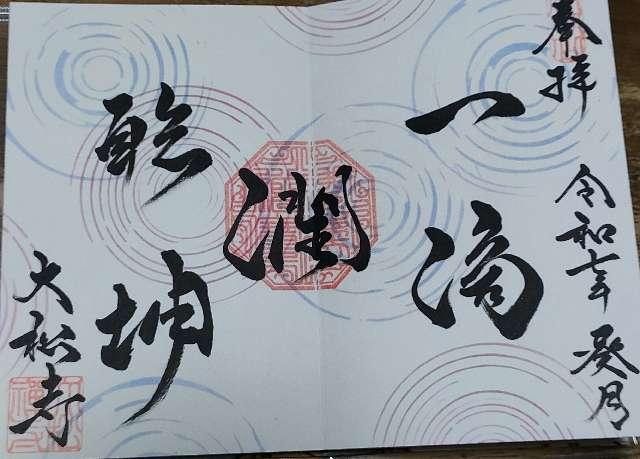 奉拝
令和七年 葵月
一滴
潤
乾坤
大松寺